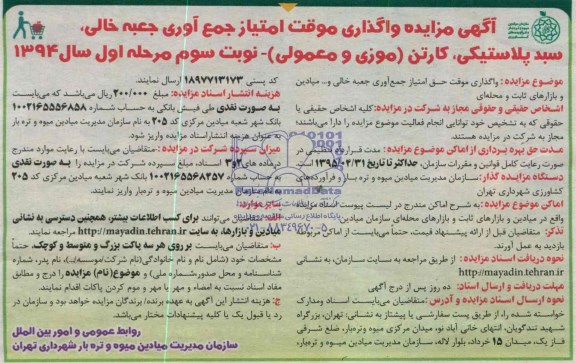 آگهی مزایده واگذاری موقت امتیاز جمع آوری جعبه خالی،
سبد پلاستیکی، کارتن (موزی و معمولی)- نوبت سوم مرحله اول سال ۱۳۹۴
موضوع مزایده: واگذاری موقت حق امتیاز جمع‌آوری جعبه خالی و... میادین
و بازارهای ثابت و محله‌ای
اشخاص حقیقی و حقوقی مجاز به شرکت در مزایده: کلیه اشخاص حقیقی یا
حقوقی که به تشخیص خود توانایی انجام فعالیت موضوع مزایده را دارا می‌باشند؛
مجاز به شرکت در مزایده هستند.
مدت حق بهره برداری از اماکن موضوع مزایده: مدت قرارداد تنظیمی در
صورت رعایت کامل قوانین و مقررات سازمان، حداکثر تا تاریخ ۱۳۹۵/۰۲/۳۱ می‌باشد.
دستگاه مزایده گذار: سازمان مدیریت میادین میوه و تره بار و فرآورده‌های
کشاورزی شهرداری تهران
اماکن موضوع مزایده: به شرح اماکن مندرج در لیست پیوست اسناد مزایده
واقع در میادین و بازارهای ثابت و بازارهای محله‌ای سازمان میادین
تذکر: متقاضیان قبل از ارائه پیشنهاد قیمت، حتماً می‌بایست از اماکن مربوطه
بازدید به عمل آورند.
نحوه دریافت اسناد مزایده: از طریق مراجعه به سایت سازمان، به نشانی
http://mayadin.tehran.ir
مهلت دریافت و ارسال اسناد: ده روز پس از درج آگهی
نحوه ارسال اسناد مزایده و آدرس: متقاضیان می‌بایست اسناد ومدارک
خواسته شده را، از طریق پست سفارشی یا پیشتاز به نشانی: تهران، بزرگراه
شهید تندگویان، انتهای خانی آباد نو، میدان مرکزی میوه وتره‌بار، ضلع شرقی
فاز یک، میدان ۱۵ خرداد، بلوار لاله، سازمان مدیریت میادین میوه و تره‌بار،
کد پستی ۱۸۹۷۷۱۳۱۷۳ ارسال نمایند.
هزینه انتشار اسناد مزایده: مبلغ ۲۰۰/۰۰۰ ریال می‌باشد که می‌بایست
به صورت نقدی طی فیش بانکی به حساب شماره ۱۰۰۲۱۶۵۵۵۶۸۵۸
بانک شهر شعبه میادین مرکزی کد ۲۰۵ به نام سازمان مدیریت میادین میوه و تره بار
به عنوان هزینه انتشار اسناد مزایده واریز شود.
میزان سپرده شرکت در مزایده: متقاضیان می‌بایست با رعایت موارد مندرج
در ماده های ۲و۳ اسناد، مبلغ سپرده شرکت در مزایده را به صورت نقدی
به حساب شماره ۱۰۰۲۱۶۵۵۶۸۲۵۷ بانک شهر شعبه میادین مرکزی کد ۲۰۵
به نام سازمان مدیریت میادین میوه و تره‌بار واریز نمایند.
سایر موارد:
الف: متقاضیان می‌توانند برای کسب اطلاعات بیشتر، همچنین دسترسی به نشانی
میادین و بازارها، به سایت http://mayadin.tehran.ir مراجعه نمایند
ب: متقاضیان می‌بایست بر روی هر سه پاکت بزرگ و متوسط و کوچک، حتماً
مشخصات خود (شامل نام و نام خانوادگی(نام شرکت/موسسه/...)، نام پدر، شماره
شناسنامه و محل صدور،شماره ملی) و موضوع(نام) مزایده را درج و مطابق
مفاد اسناد نسبت به امضاء و مهر یا مهر و موم کردن پاکات اقدام نمایند.
ج: هزینه انتشار این آگهی به عهده برنده/ برندگان مزایده خواهد بود و سازمان در
رد یا قبول یک یا کلیه پیشنهادات مختار می‌باشد.
روابط عمومی و امور بین الملل
سازمان مدیریت میادین میوه و تره بار شهرداری تهران
پایگاه اطلاع رسانی مناقصه و مزایده
۰۲۱-۸۸۳۴۹۶۷۰-۵